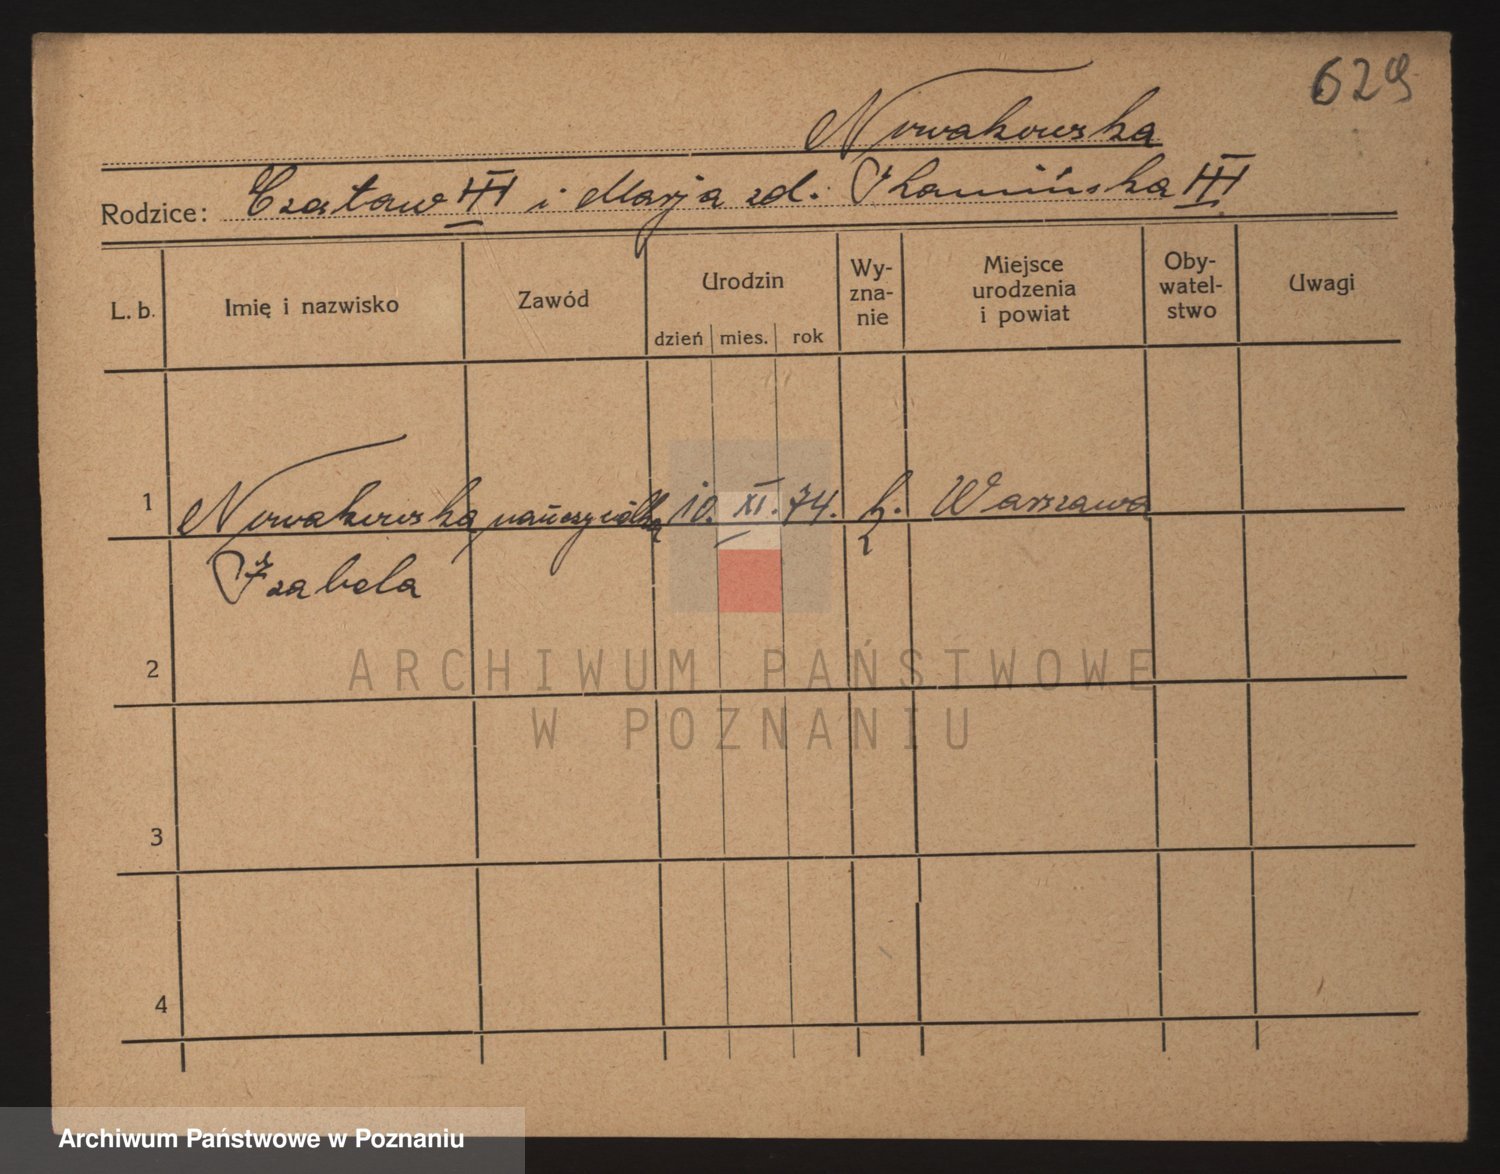 629
Nowakowska
Rodzice: Czesław i Marja zd. Kamińska
L. b. Imię i nazwisko Zawód Urodzin dzień mies. rok Wyznanie Miejsce urodzenia i powiat Obywatelstwo Uwagi
1 Nowakowska nauczycielka 10. XI. 74. k. Warszawa
Izabela
2
3
4
ARCHIWUM PAŃSTWOWE
W POZNANIU
Archiwum Państwowe w Poznaniu